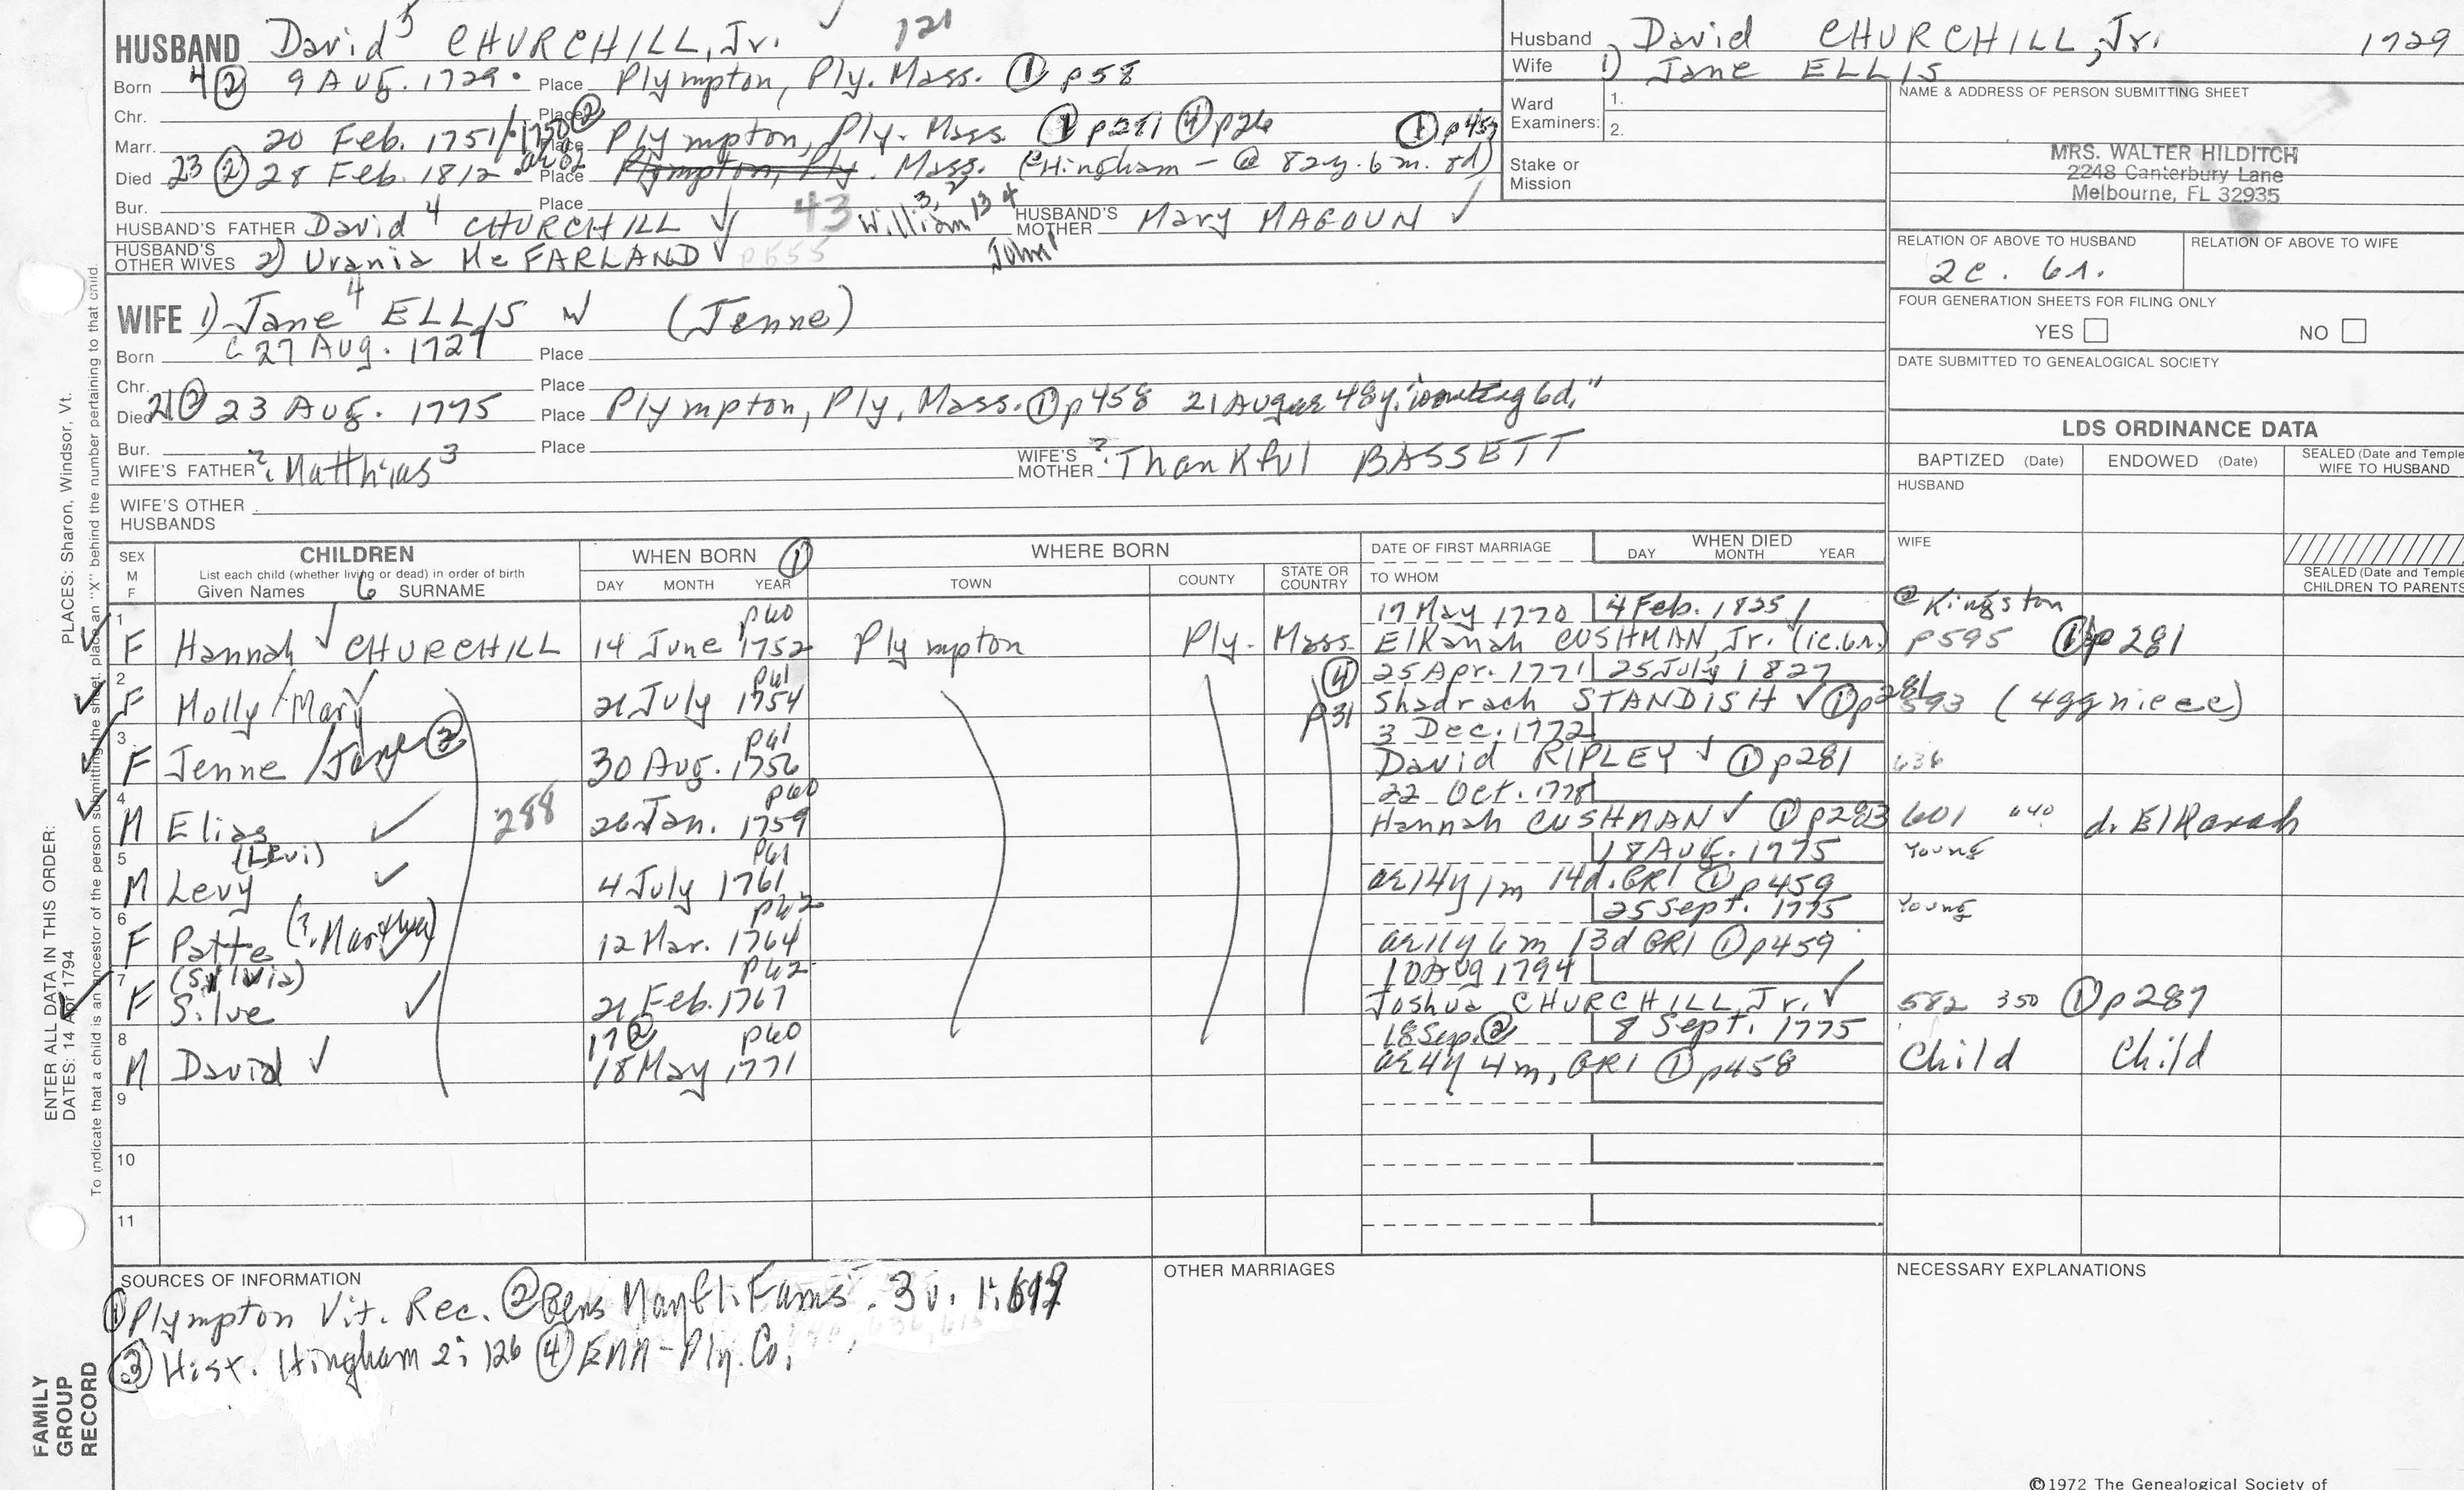 HUSBAND David⁵ CHURCHILL, Jr. 121
Born 4 ② 9 Aug. 1729 Place Plympton, Ply. Mass. ① p58
Chr. Place
Marr. 20 Feb. 1751/1750 ② Place Plympton, Ply. Mass ① p281 ④ p26 ① p457
Died 23 ② 28 Feb. 1812 ae 82 Place Plympton, Ply. Mass. (Hingham - @ 82y. 6m. 8d)
Bur. Place
HUSBAND'S FATHER David⁴ CHURCHILL 43 William 3, 2 13 4 HUSBAND'S MOTHER Mary MAGOUN
HUSBAND'S OTHER WIVES 2) Urania McFARLAND p555 John¹
WIFE 1) Jane⁴ ELLIS (Jenne)
Born C 27 Aug. 1727 Place
Chr. Place
Died 21 ② 23 Aug. 1775 Place Plympton, Ply. Mass. ① p458 21 Aug ae 48y. "vomiting 6d."
Bur. Place
WIFE'S FATHER ?. Matthias³ WIFE'S MOTHER ?. Thankful BASSETT
WIFE'S OTHER HUSBANDS
Husband David CHURCHILL, Jr. 1729
Wife 1) Jane ELLIS
Ward Examiners: 1.
2.
Stake or Mission
NAME & ADDRESS OF PERSON SUBMITTING SHEET
MRS. WALTER HILDITCH
2248 Canterbury Lane
Melbourne, FL 32935
RELATION OF ABOVE TO HUSBAND RELATION OF ABOVE TO WIFE
2c. 6r.
FOUR GENERATION SHEETS FOR FILING ONLY
YES NO
DATE SUBMITTED TO GENEALOGICAL SOCIETY
LDS ORDINANCE DATA
BAPTIZED (Date) ENDOWED (Date) SEALED (Date and Temple) WIFE TO HUSBAND
HUSBAND
WIFE
SEALED (Date and Temple) CHILDREN TO PARENTS
SEX M F
CHILDREN
List each child (whether living or dead) in order of birth
Given Names 6 SURNAME
WHEN BORN ①
DAY MONTH YEAR
WHERE BORN
TOWN COUNTY STATE OR COUNTRY
DATE OF FIRST MARRIAGE
TO WHOM
WHEN DIED
DAY MONTH YEAR
1 p60 17 May 1770 4 Feb. 1825 @ Kingston
F Hannah CHURCHILL 14 June 1752 Plympton Ply. Mass. Elkanah CUSHMAN, Jr. (1c.6r.) p595 ① p281
2 p61 ④ 25 Apr. 1771 25 July 1827
F Molly/Mary 21 July 1754 p31 Shadrach STANDISH ① p281 593 (4gg niece)
3 p61 3 Dec. 1772
F Jenne/Jane ② 30 Aug. 1756 David RIPLEY ① p281 636
4 p60 22 Oct. 1778
M Elias 288 26 Jan. 1759 Hannah CUSHMAN ① p283 601 640 d. Elkanah
5 (Levi) p61 18 Aug. 1775 Young
M Levy 4 July 1761 ae 14y 1m 14d. GR1 ① p459
6 p62 25 Sept. 1775 Young
F Patte (?. Martha) 12 Mar. 1764 ae 11y 6m 13d GR1 ① p459
7 (Sylvia) p62 10 Aug 1794
F Silve 21 Feb. 1767 Joshua CHURCHILL, Jr. 582 350 ① p287
8 17 ② p60 18 Sep. ② 8 Sept. 1775
M David 18 May 1771 ae 4y 4m, GR1 ① p458 Child Child
9
10
11
SOURCES OF INFORMATION
① Plympton Vit. Rec. ② Gens Mayfl. Fams. 3v. 1:
③ Hist. Hingham 2: 126 ④ EMM - Ply. Co.
OTHER MARRIAGES
NECESSARY EXPLANATIONS
©1972 The Genealogical Society of
PLACES: Sharon, Windsor, Vt.
ENTER ALL DATA IN THIS ORDER:
DATES: 14 Apr 1794
To indicate that a child is an ancestor of the person submitting the sheet, place an "X" behind the number pertaining to that child.
FAMILY GROUP RECORD